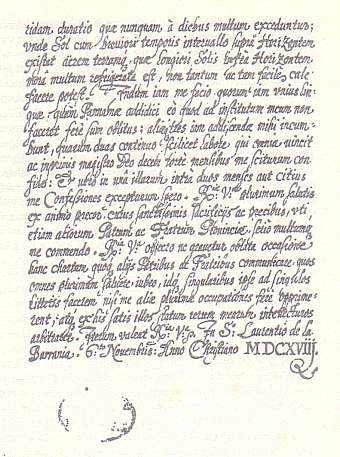 ridam duratio quæ nunquam 5 diebus multum exceduntur;
vnde Sol cum breuiori temporis interuallo supra Horizontem
existat aerem terramq. quæ longiori Solis infra Horizontem
morâ multum refrigerata est, non tantum ac tam facile cale
facere potest. Indum iam me facio quorum iam vnius lin-
guæ quam Pannamæ addidici eo quod ad institutum meum non
faceret ferè sum oblitus: aliæ tres iam addiscendæ mihi incum-
bunt, quarum duas continuo scilicet labore qui omnia vincit
ac inprimis magistro Deo decem forte mensibus me sciturum con
fido: & vero in una illarum intra duos menses aut citius
me Confessiones excepturum spero. Ræ. Væ. plurimum salutis
ex animo precor: cuius sanctissimis sacrificijs ac precibus, vti,
etiam aliorum Patrum ac Fratrum Prouinciæ serio multumq
me commendo. Ræ. Væ. obsecro ne grauetur oblata occasione
hanc chartam quoq. alijs Patribus ac Fratribus communicare quos
omnes plurimum saluere iubeo, idq. singularibus ipse ad singulos
litteris facerem nisi me aliæ plurimæ occupationes ferè opprime-
rent; atq. ex his satis illos statum rerum mearum intellecturos
arbitrarer. Iterum valeat Ræ. Væ. In Sto. Laurentio de la
Barrania. 6. Nouembris: Anno Christiano MDCXVIIJ.